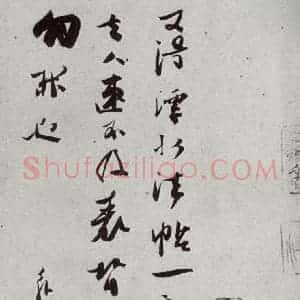 又得潭州法帖一
去人速不及表背
勿訝也
袁
Shufaziliao.COM